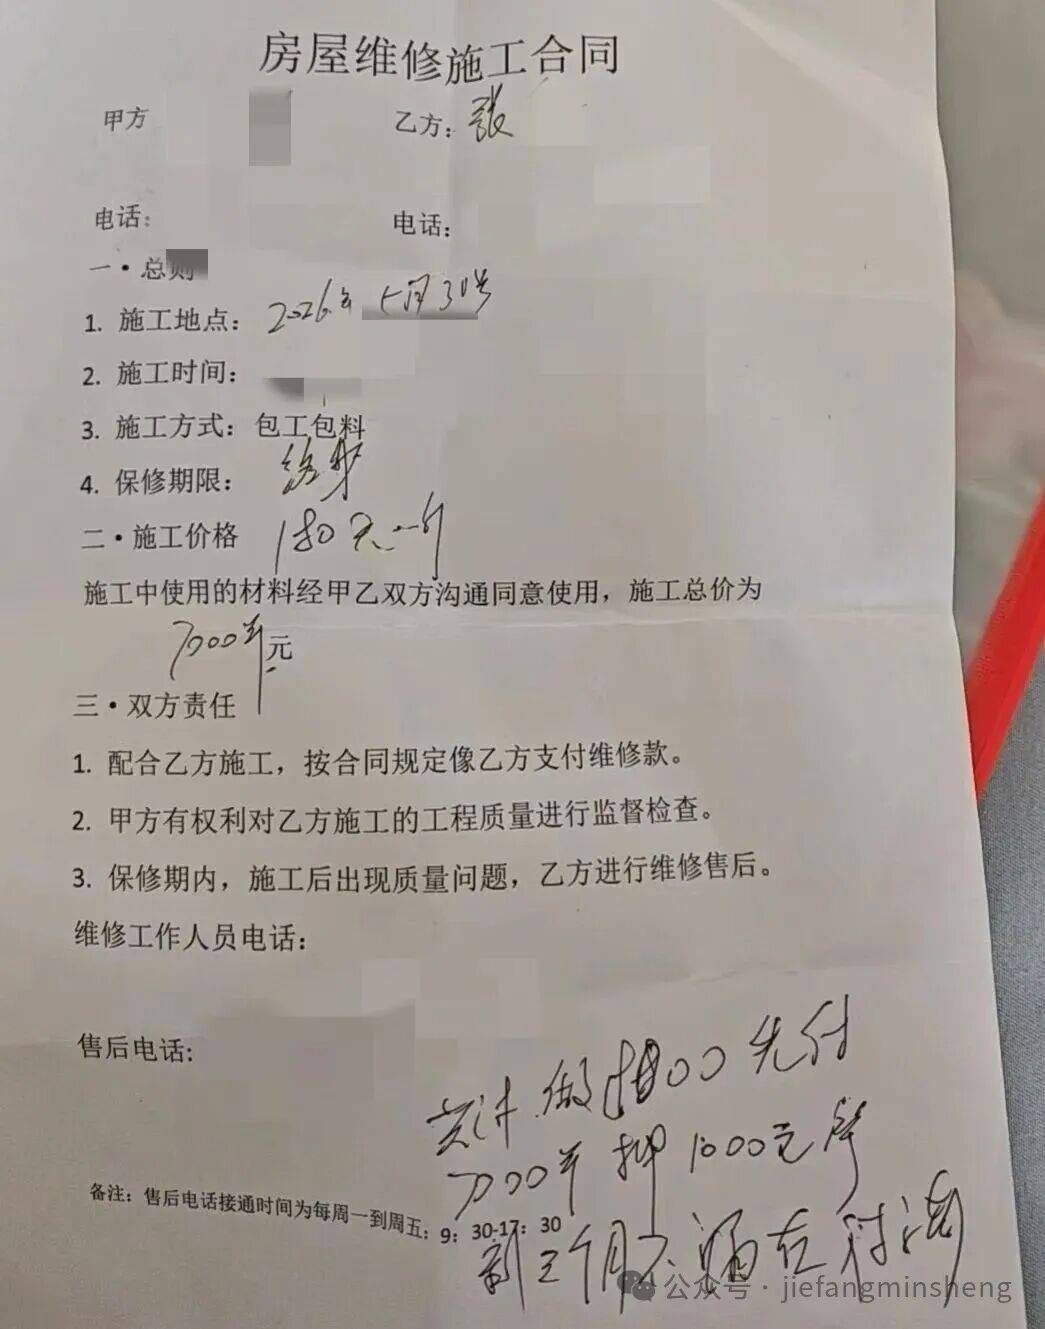 房屋维修施工合同
甲方 乙方：張
电话： 电话：
一·总则
1. 施工地点：2026年5月30号
2. 施工时间：
3. 施工方式：包工包料
4. 保修期限：终身
二·施工价格 180元一
施工中使用的材料经甲乙双方沟通同意使用，施工总价为
7000 元
三·双方责任
1. 配合乙方施工，按合同规定像乙方支付维修款。
2. 甲方有权利对乙方施工的工程质量进行监督检查。
3. 保修期内，施工后出现质量问题，乙方进行维修售后。
维修工作人员电话：
售后电话：
共计做 00先付
7000 押1000元
备注：售后电话接通时间为每周一到周五：9：30-17：30
三个月不漏在付清
公众号·jiefangminsheng